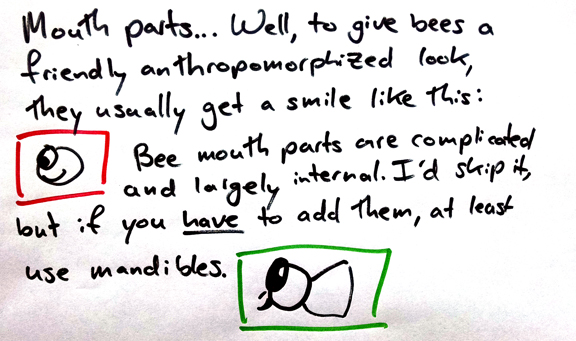 Mouth parts... Well, to give bees a
friendly anthropomorphized look,
they usually get a smile like this:
Bee mouth parts are complicated
and largely internal. I'd skip it,
but if you have to add them, at least
use mandibles.